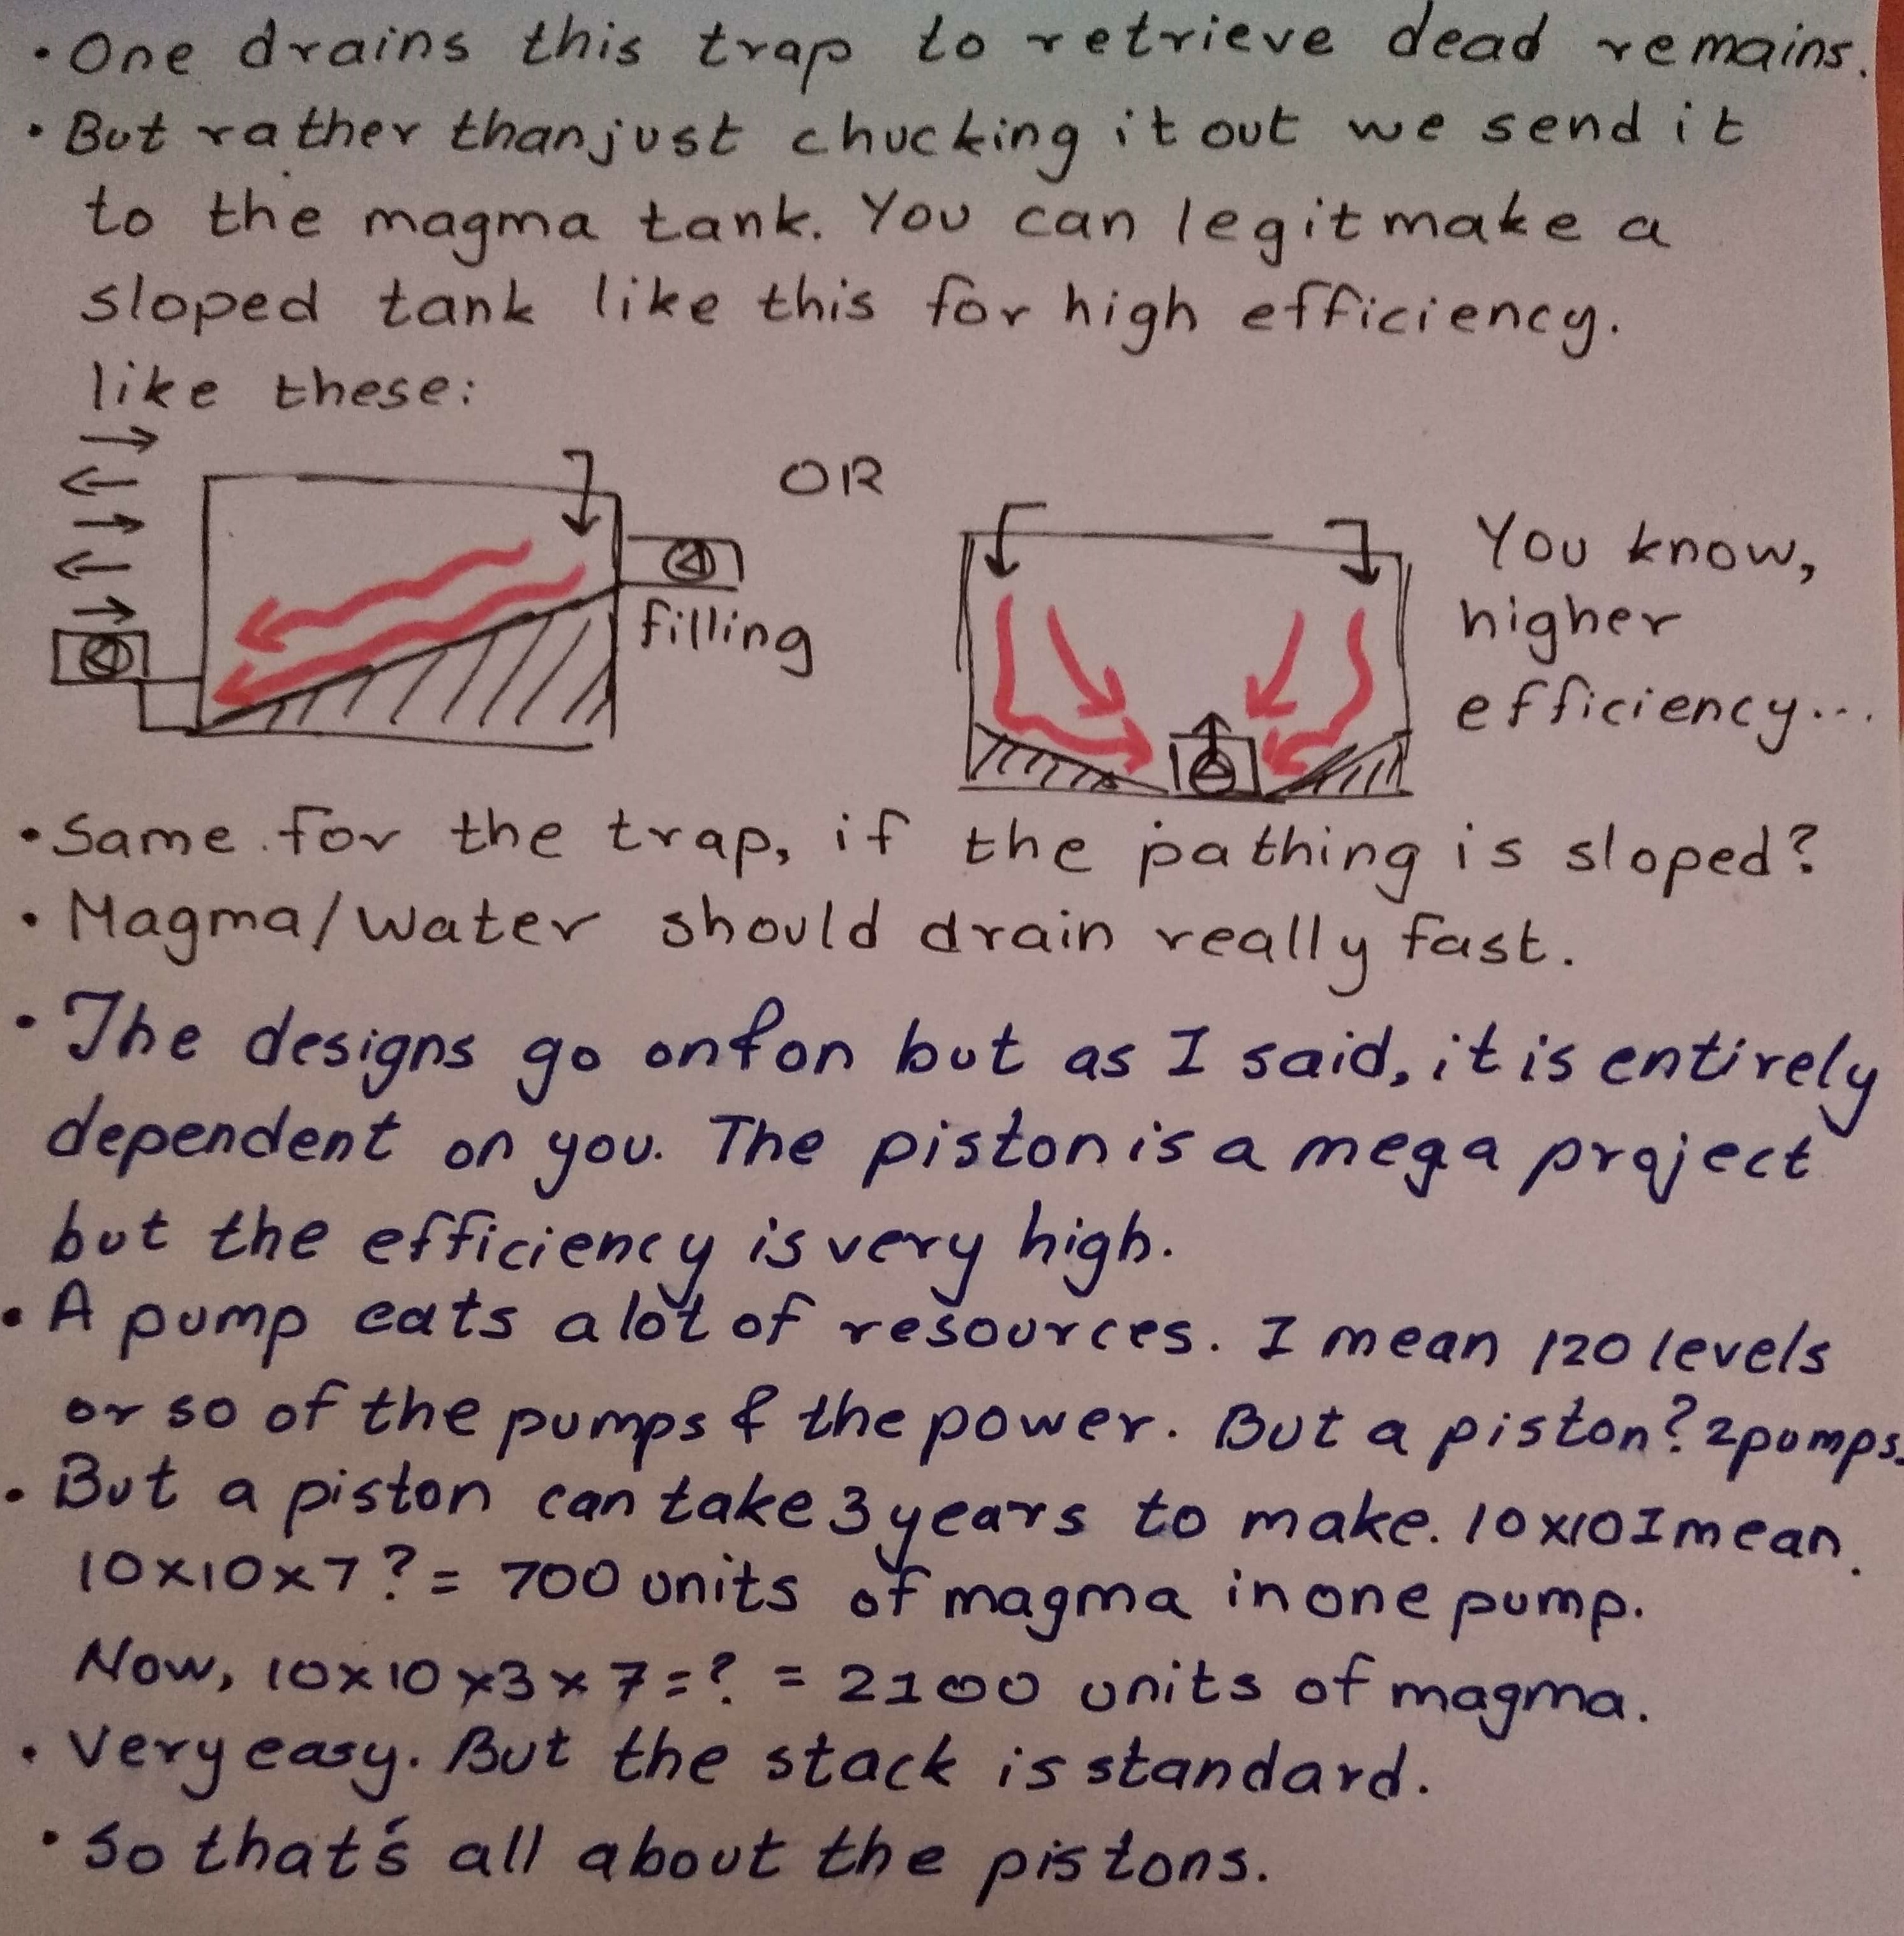 • One drains this trap to retrieve dead remains.
• But rather than just chucking it out we send it
to the magma tank. You can legit make a
sloped tank like this for high efficiency.
like these:
OR
filling
You know,
higher
efficiency...
• Same for the trap, if the pathing is sloped?
• Magma/water should drain really fast.
• The designs go on & on but as I said, it is entirely
dependent on you. The piston is a mega project
but the efficiency is very high.
• A pump eats a lot of resources. I mean 120 levels
or so of the pumps & the power. But a piston? 2 pumps.
• But a piston can take 3 years to make. 10x10 I mean.
10x10x7? = 700 units of magma in one pump.
Now, 10x10x3x7=? = 2100 units of magma.
• Very easy. But the stack is standard.
• So that's all about the pistons.